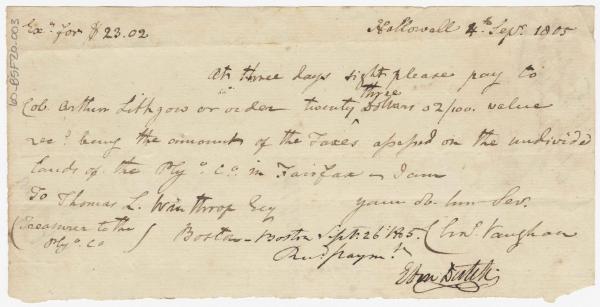 Exa. for $23.02 Hallowell 4th Sepr. 1805
At three days sight please pay to
Col. Arthur Lithgow or order twenty three Dollars 02/100. value
recd. being the amount of the Taxes assessed on the undivided
lands of the Plyo. Co. in Fairfax – I am
To Thomas L. Winthrop Esq your ob. hum Ser.
(Treasurer to the Plyo. Co Boston – Boston Sept. 26 1805. Vaughan
Recd. paymt.
Eben Dutch
60-BSF20-003